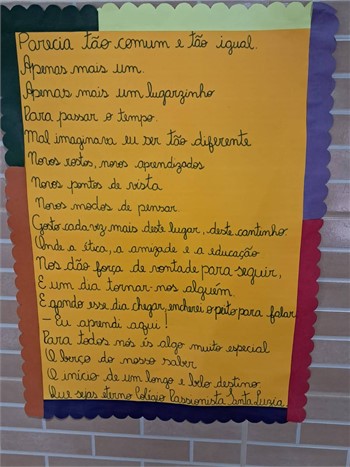 Parecia tão comum e tão igual.
Apenas mais um.
Apenas mais um lugarzinho
Para passar o tempo.
Mal imaginava eu ser tão diferente
Novos rostos, novos aprendizados
Novos pontos de vista
Novos modos de pensar
Gosto cada vez mais deste lugar, deste cantinho.
Onde a ética, a amizade e a educação
Nos dão força de vontade para seguir,
E um dia tornar-nos alguém
E qando esse dia chegar, encherei o peito para falar
- Eu aprendi aqui!
Para todos nós és algo muito especial
O berço do nosso saber
O início de um longo e belo destino
Que sejas eterno Colégio Passionista Santa Luzia.